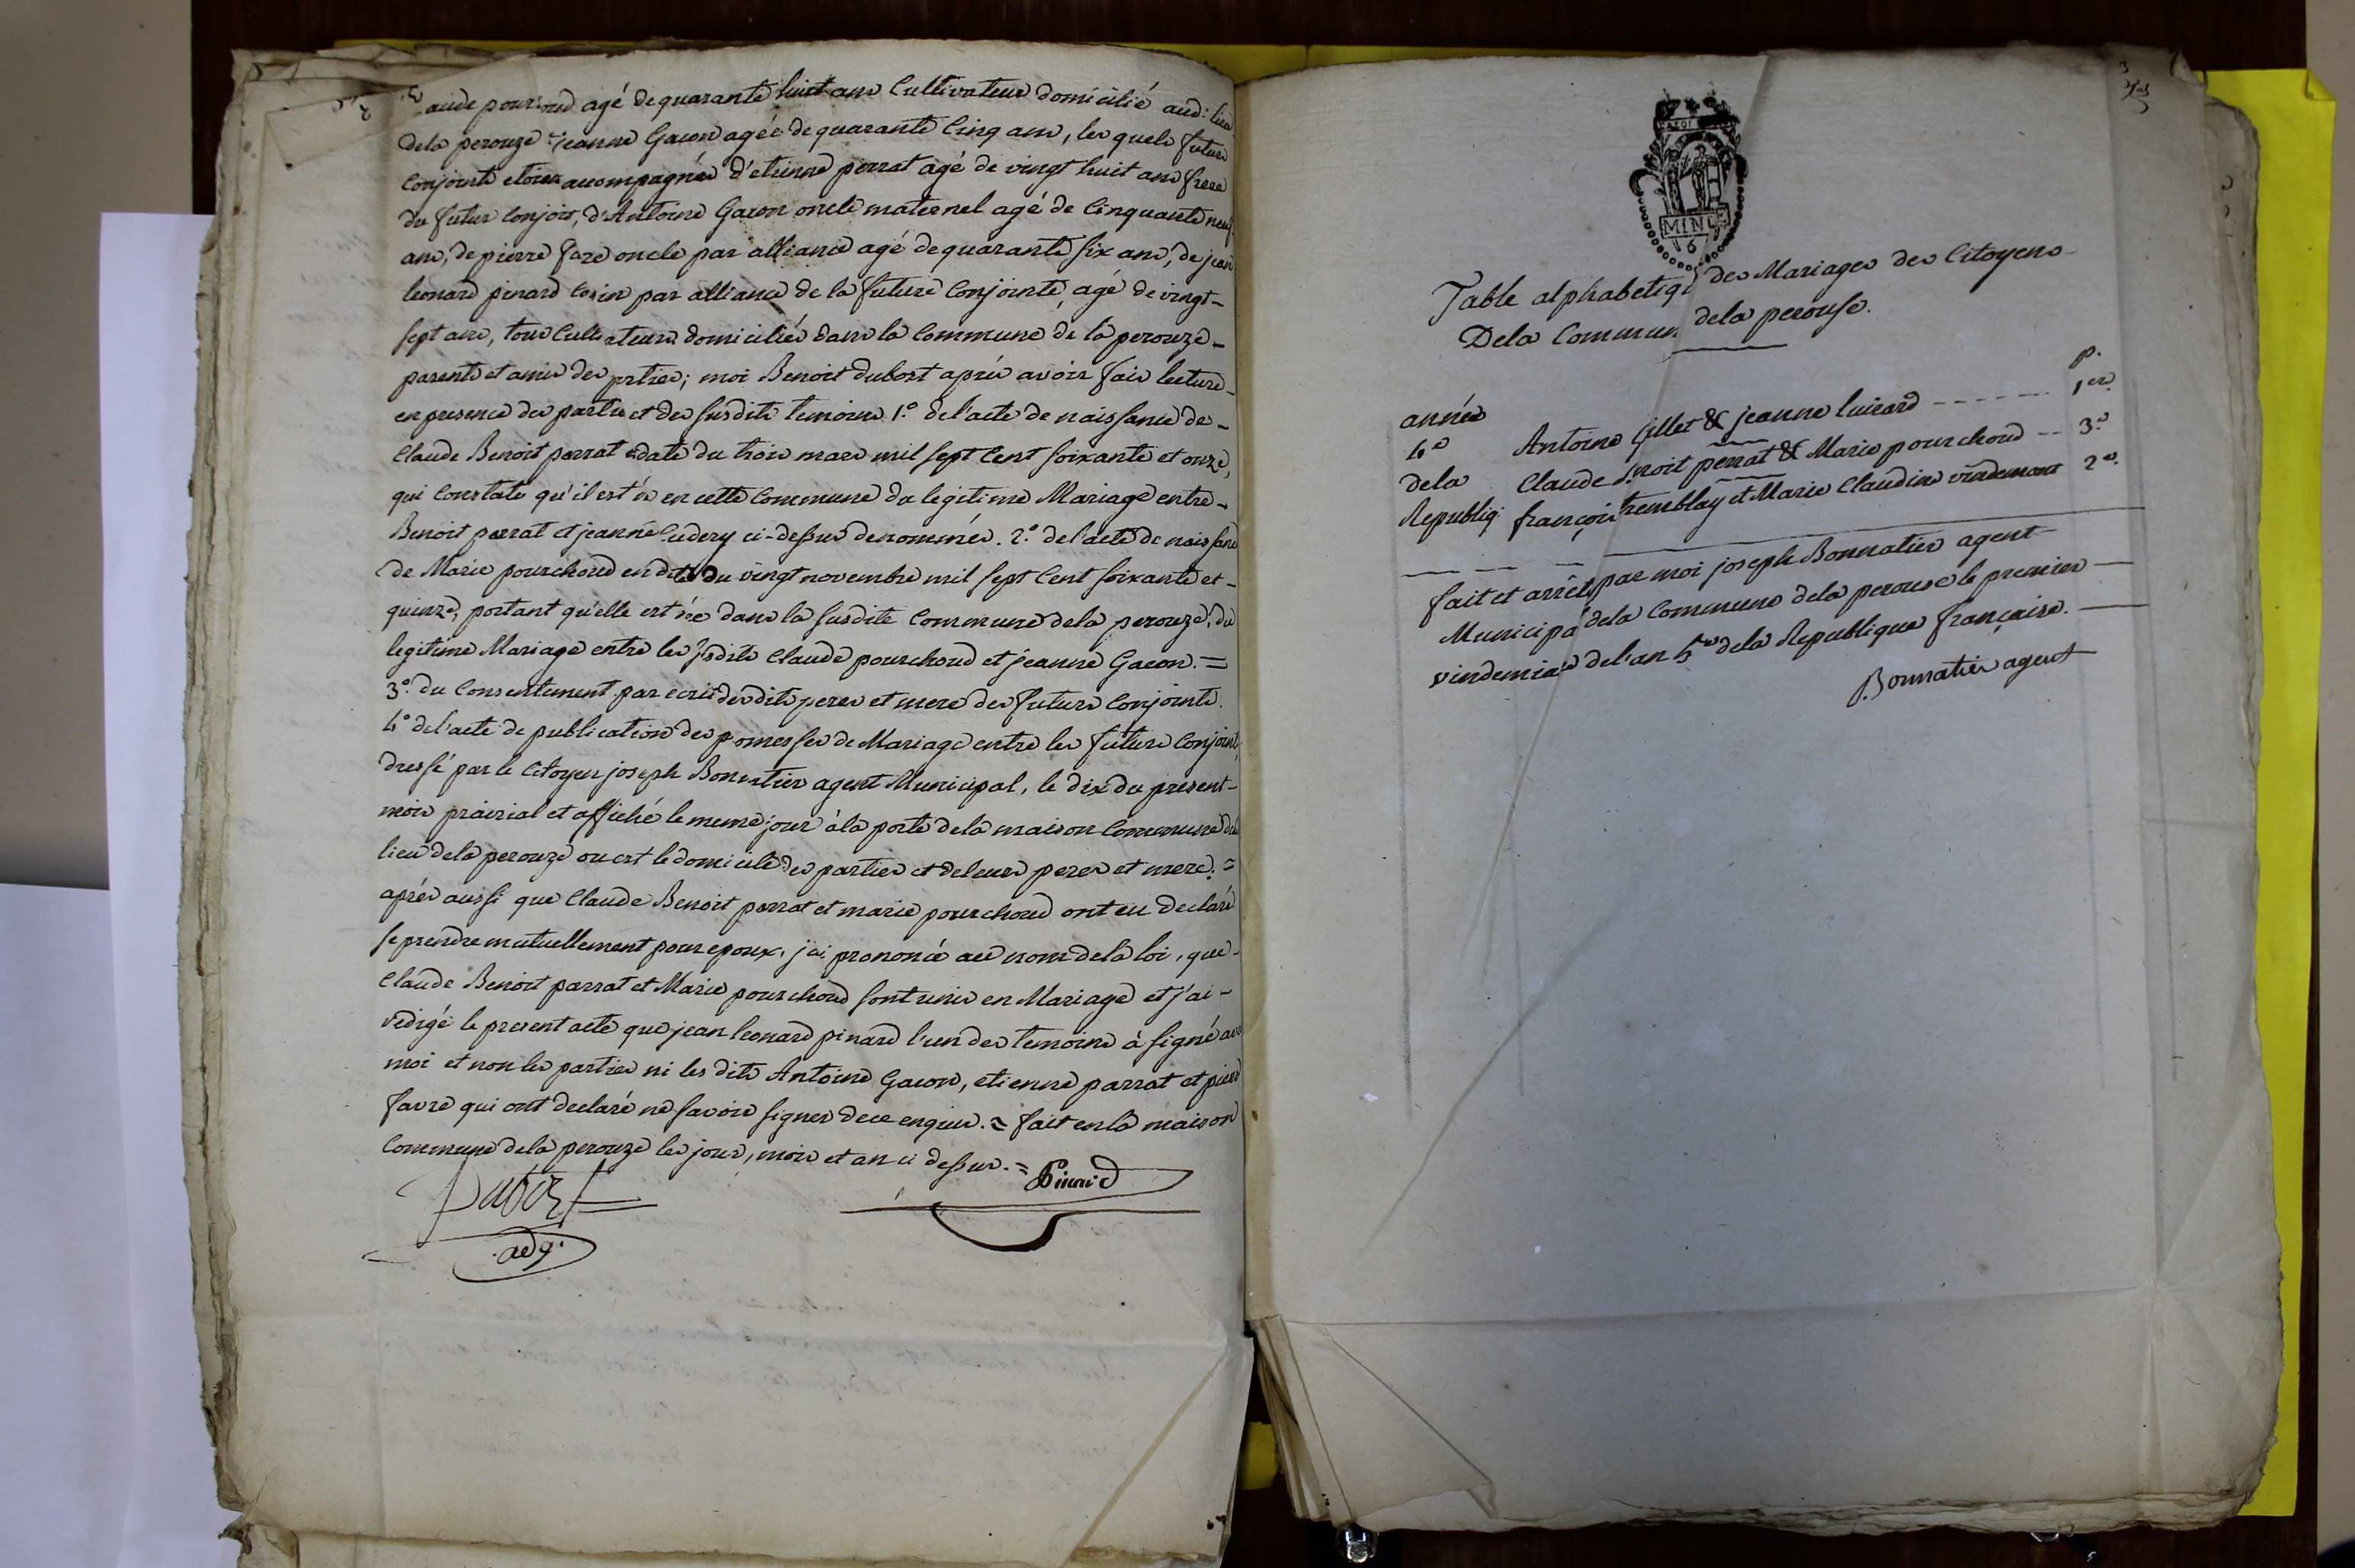 aude pourchoud agé de quarante huit ans Cultivateur domicilié aud: lieu
dela perouze & jeanne Gacon agée de quarante Cinq ans, les quels futurs
Conjoints etoient accompagnés d'etienne perrat agé de vingt huit ans frere
du futur Conjoint, d'Antoine Gacon oncle maternel agé de Cinquante neuf
ans, de pierre favre oncle par alliance agé de quarante six ans, de jean
leonard pinard Cosin par alliance de la future Conjointe, agé de vingt-
sept ans, tous Cultivateurs domiciliés dans la Commune de la perouze-
parents et amis des parties; moi Benoit dubost aprés avoir fait lecture-
en presence des parties et des susdits temoins 1.° de l'acte de naissance de-
Claude Benoit perrat en date du trois mars mil sept Cent soixante et onze,
qui Constate qu'il est né en cette Commune du legitime Mariage entre-
Benoit perrat et jeanne Cudery ci-dessus denommés. 2.° de l'acte de naissance
de Marie pourchoud en date du vingt novembre mil sept Cent soixante et-
quinze, portant qu'elle est née dans la susdite Commune dela perouze, du
legitime Mariage entre les susdits Claude pourchoud et jeanne Gacon. =
3.° du Consentement par ecrit des dits peres et mere des futurs Conjoints.
4.° de l'acte de publication des promesses de Mariage entre les futurs Conjoints,
dressé par le Citoyen joseph Bonnatier agent Municipal, le dix du present-
mois prairial et affiché le meme jour à la porte dela maison Commune du
lieu dela perouze ou est le domicile des parties et deleurs peres et mere. =
aprés aussi que Claude Benoit perrat et marie pourchoud ont eu declaré
se prendre mutuellement pour epoux, j'ai prononcé au nom dela loi, que-
Claude Benoit parrat et Marie pourchoud sont unis en Mariage et j'ai-
redigé le present acte que jean leonard pinard l'un des temoins à signé avec
moi et non les parties ni les dits Antoine Gacon, etienne parrat et pierre
favre qui ont declaré ne savoir signer de ce enquis. = fait en la maison
Commune dela perouze les jour, mois et an ci dessus. = Pinard
Dubost
adj.
MINE
Table alphabetiq des Mariages des Citoyens-
Dela Commun dela perouse.
p.
année
4.e Antoine Gillet & jeanne luirard ------ 1er
dela Claude Benoit perrat & Marie pourchoud -- 3.e
Republiq: françois tremblay et Marie Claudine vindemont 2e.
fait et arrêté par moi joseph Bonnatier agent
Municipal dela Commune dela perouse le premier
vindemiaire del'an 5me dela Republique française.
Bonnatier agent